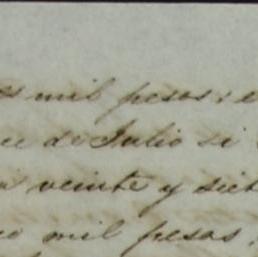 mil pesos
de Julio si
veinte y siet
mil pesos